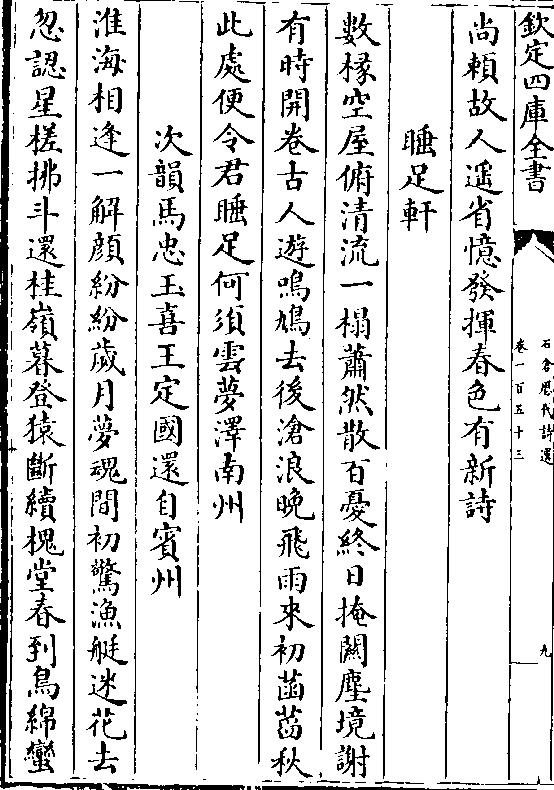 欽定四庫全書
石倉歷代詩選
卷一百五十三
九
尚賴故人遥省憶發揮春色有新詩
睡足軒
數椽空屋俯清流一榻蕭然散百憂終日掩關塵境謝
有時開卷古人遊鳴鳩去後滄浪晚飛雨來初菡萏秋
此處便令君睡足何須雲夢澤南州
次韻馬忠玉喜王定國還自賓州
淮海相逢一解顔紛紛歲月夢魂間初驚漁艇迷花去
忽認星槎拂斗還桂嶺暮登猿斷續槐堂春到鳥綿蠻